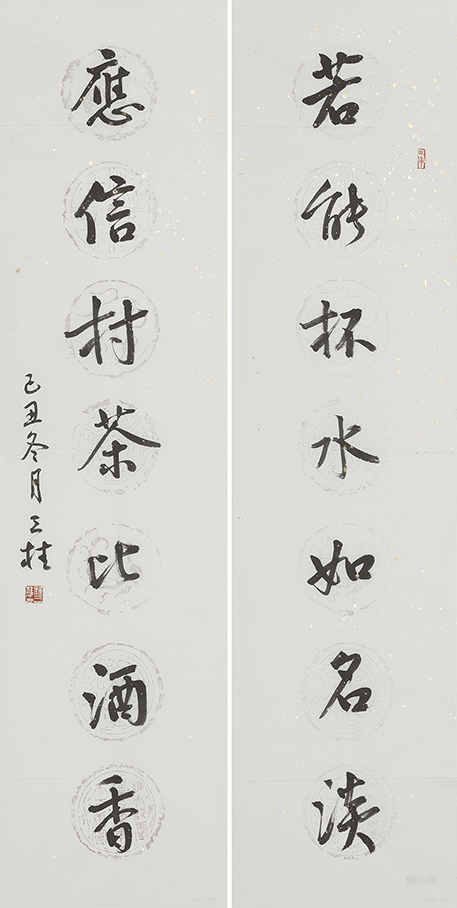 若能杯水如名淡
應信村茶比酒香
己丑冬月三桂